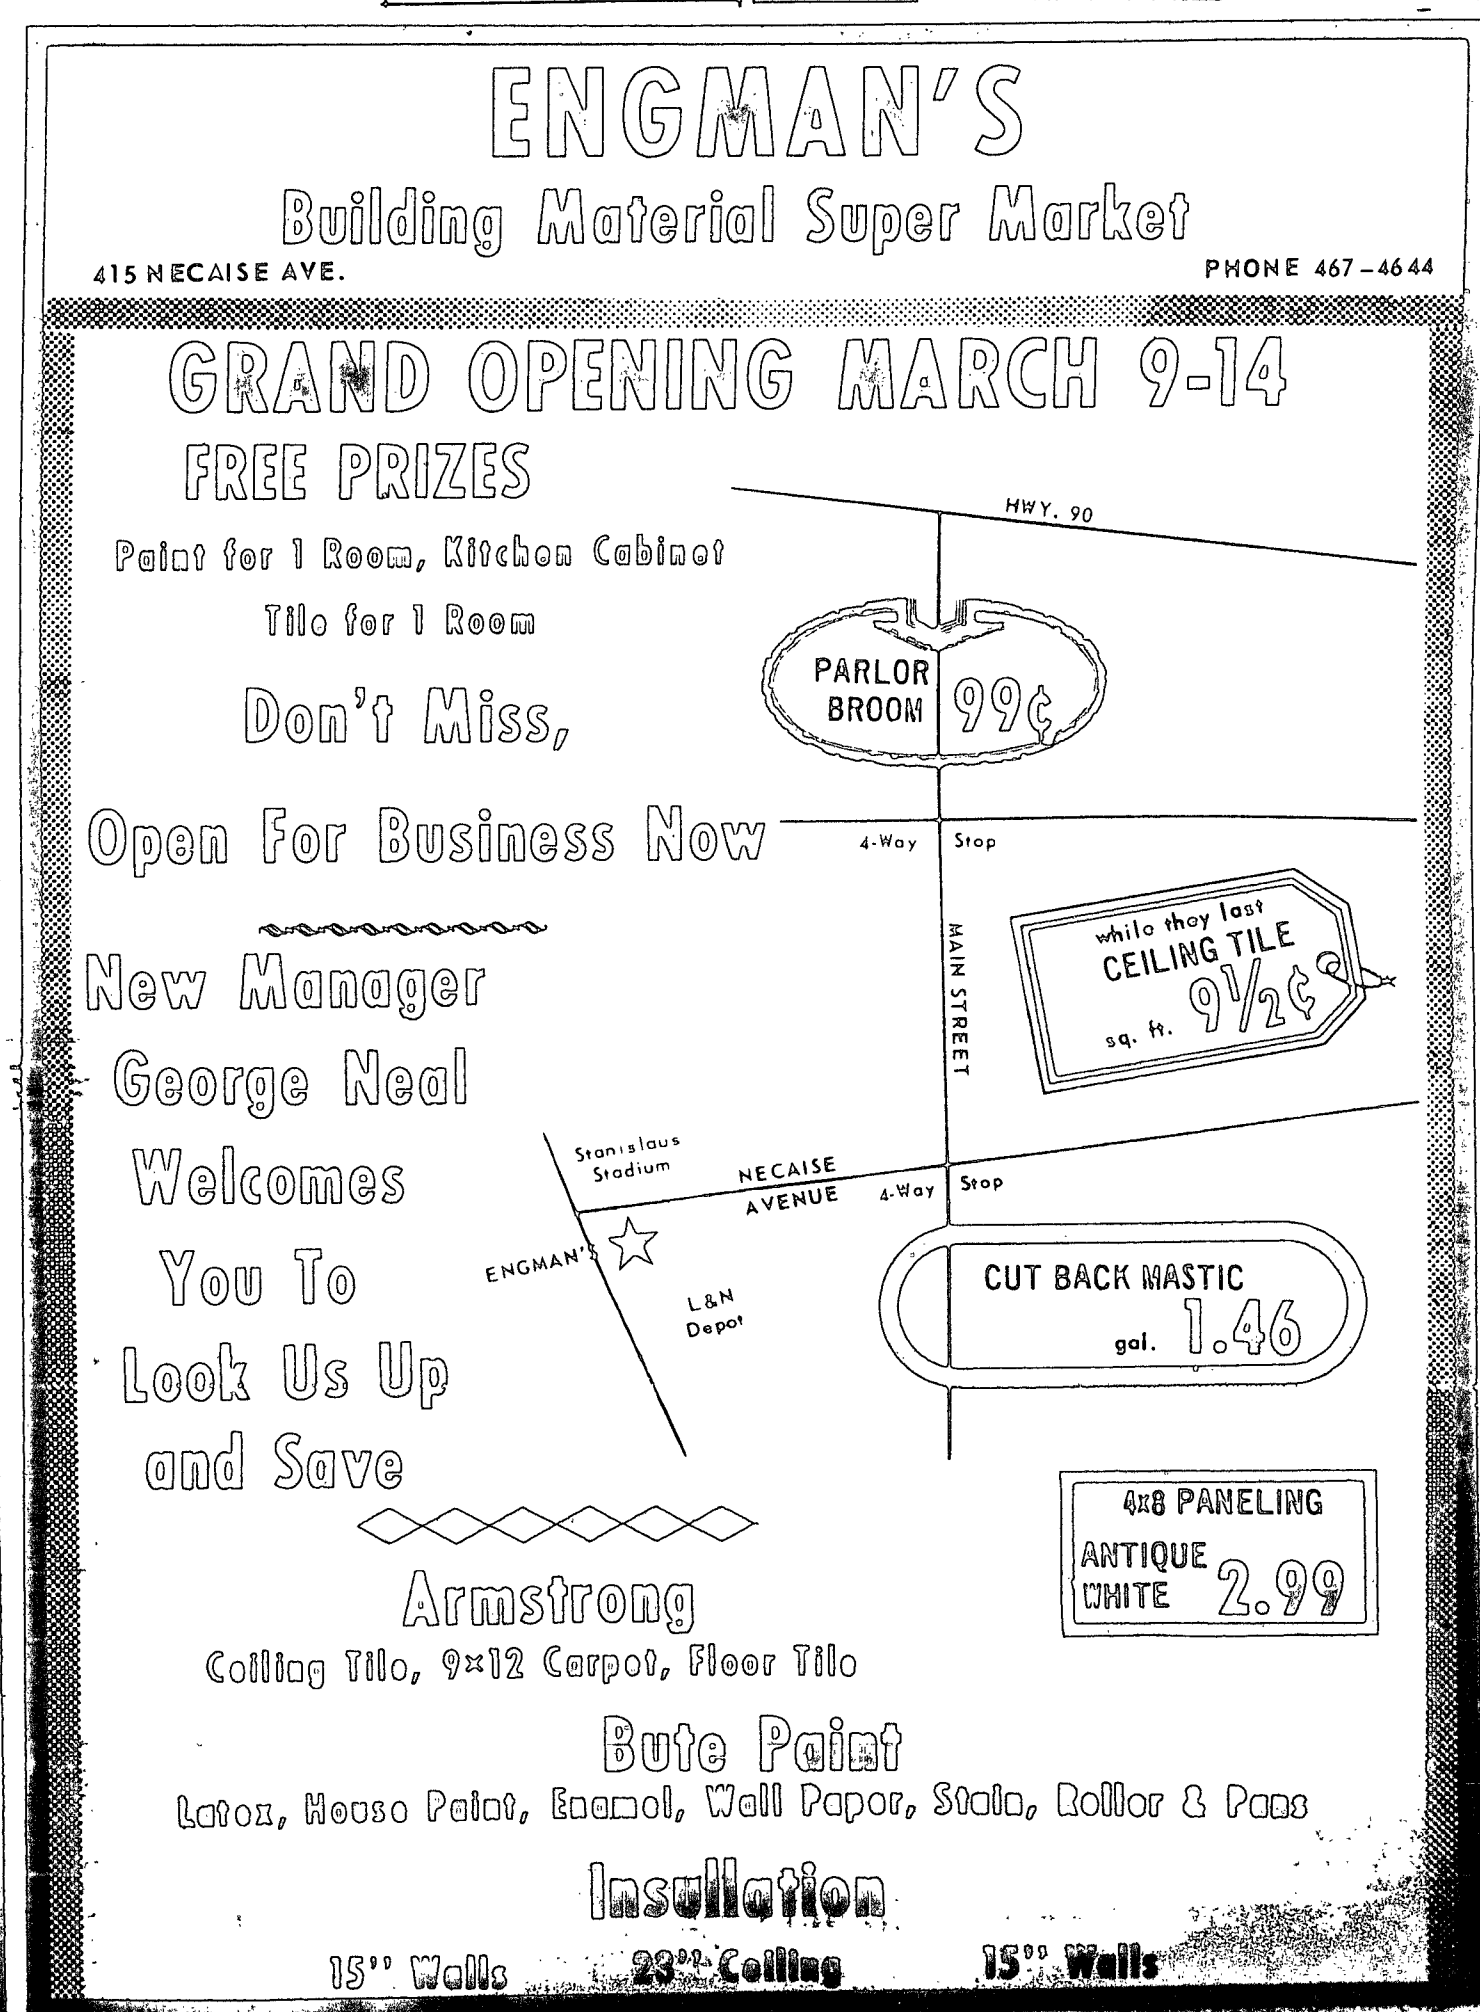 ENGMAN'S
Building Material Super Market
415 NECAISE AVE.
PHONE 467-4644
GRAND OPENING MARCH 9-14
FREE PRIZES
Paint for 1 Room, Kitchen Cabinet
Tile for 1 Room
Don't Miss,
Open For Business Now
New Manager
George Neal
Welcomes
You To
Look Us Up
and Save
HWY. 90
PARLOR
BROOM 99¢
4-Way Stop
MAIN STREET
while they last
CEILING TILE
sq. ft. 9½¢
Stanislaus
Stadium
NECAISE
AVENUE
4-Way Stop
ENGMAN'S
L&N
Depot
CUT BACK MASTIC
gal. 1.46
4x8 PANELING
ANTIQUE
WHITE 2.99
Armstrong
Ceiling Tile, 9x12 Carpet, Floor Tile
Bute Paint
Latex, House Paint, Enamel, Wall Paper, Stain, Roller & Pans
Insullation
15" Walls 23" Ceiling 15" Walls